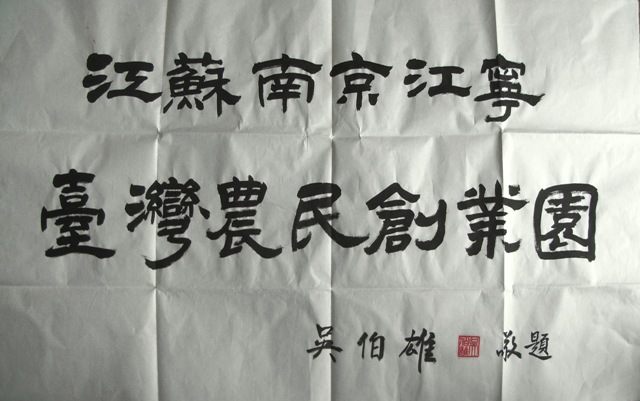 江蘇南京江寧
臺灣農民創業園
吳伯雄 敬題